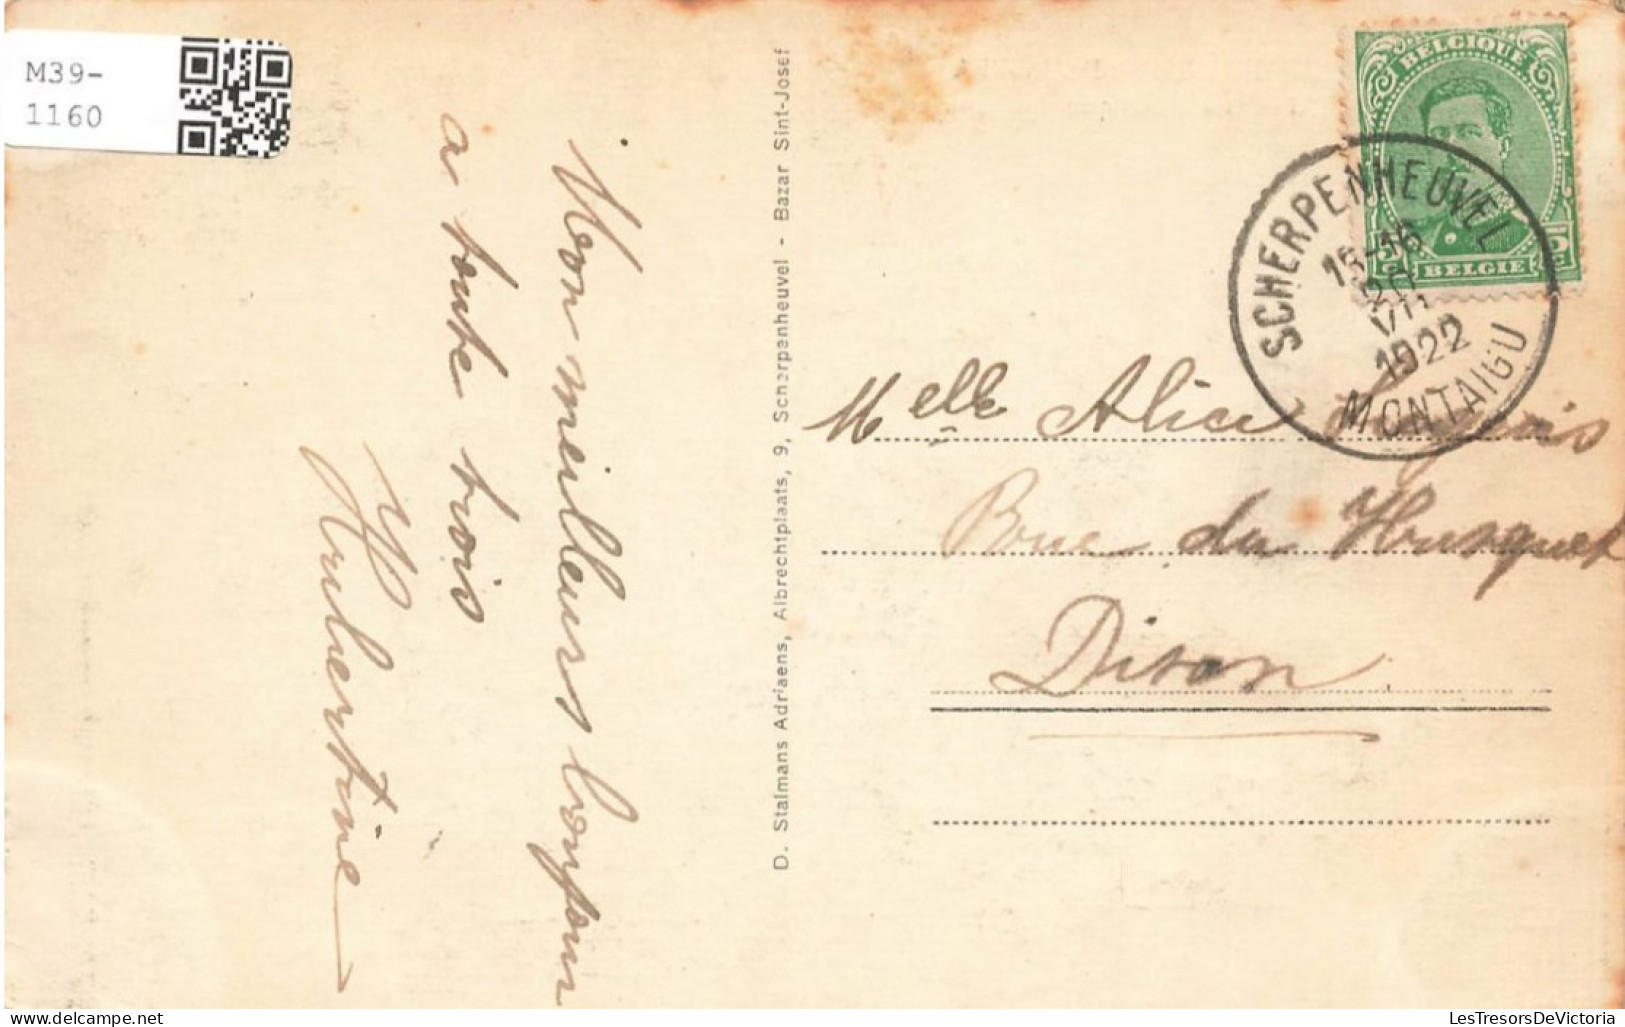 M39-
1160
Mon meilleurs bonjour
a toute trois
Hulbertine
D. Stalmans Adriaens, Albrechtplaats, 9, Scherpenheuvel - Bazar Sint-Josef
BELGIQUE
5 c 5 c
BELGIE
SCHERPENHEUVEL
15-16
20
VII
1922
MONTAIGU
Melle Alice
Rue du Husquet
Dison
LesTresorsDeVictoria.com